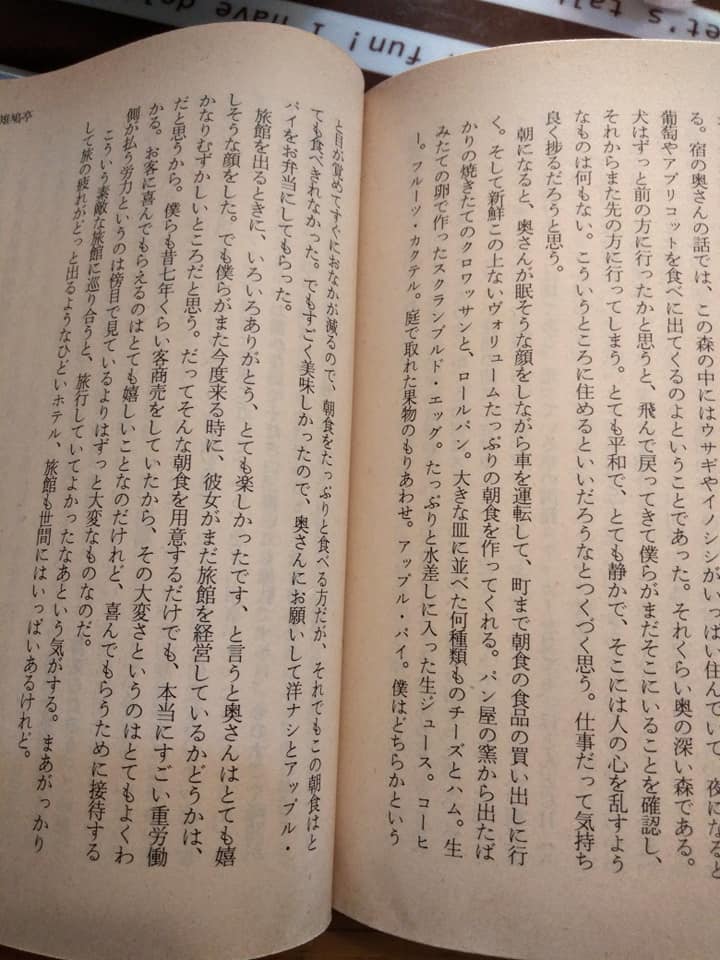 et's tal
! fun! I have de
る。宿の奥さんの話では、この森の中にはウサギやイノシシがいっぱい住んでいて、夜になると
葡萄やアプリコットを食べに出てくるのよということであった。それくらい奥の深い森である。
犬はずっと前の方に行ったかと思うと、飛んで戻ってきて僕らがまだそこにいることを確認し、
それからまた先の方に行ってしまう。とても平和で、とても静かで、そこには人の心を乱すよう
なものは何もない。こういうところに住めるといいだろうなとつくづく思う。仕事だって気持ち
良く捗るだろうと思う。
朝になると、奥さんが眠そうな顔をしながら車を運転して、町まで朝食の食品の買い出しに行
く。そして新鮮この上ないヴォリュームたっぷりの朝食を作ってくれる。パン屋の窯から出たば
かりの焼きたてのクロワッサンと、ロールパン。大きな皿に並べた何種類ものチーズとハム。生
みたての卵で作ったスクランブルド・エッグ。たっぷりと水差しに入った生ジュース。コーヒ
ー。フルーツ・カクテル。庭で取れた果物のもりあわせ。アップル・パイ。僕はどちらかという
と目が覚めてすぐにおなかが減るので、朝食をたっぷりと食べる方だが、それでもこの朝食はと
ても食べきれなかった。でもすごく美味しかったので、奥さんにお願いして洋ナシとアップル・
パイをお弁当にしてもらった。
旅館を出るときに、いろいろありがとう、とても楽しかったです、と言うと奥さんはとても嬉
しそうな顔をした。でも僕らがまた今度来る時に、彼女がまだ旅館を経営しているかどうかは、
かなりむずかしいところだと思う。だってそんな朝食を用意するだけでも、本当にすごい重労働
だと思うから。僕らも昔七年くらい客商売をしていたから、その大変さというのはとてもよくわ
かる。お客に喜んでもらえるのはとても嬉しいことなのだけれど、喜んでもらうために接待する
側が払う労力というのは傍目で見ているよりはずっと大変なものなのだ。
こういう素敵な旅館に巡り合うと、旅行していてよかったなあという気がする。まあがっかり
して旅の疲れがどっと出るようなひどいホテル、旅館も世間にはいっぱいあるけれど。
雉鳩亭